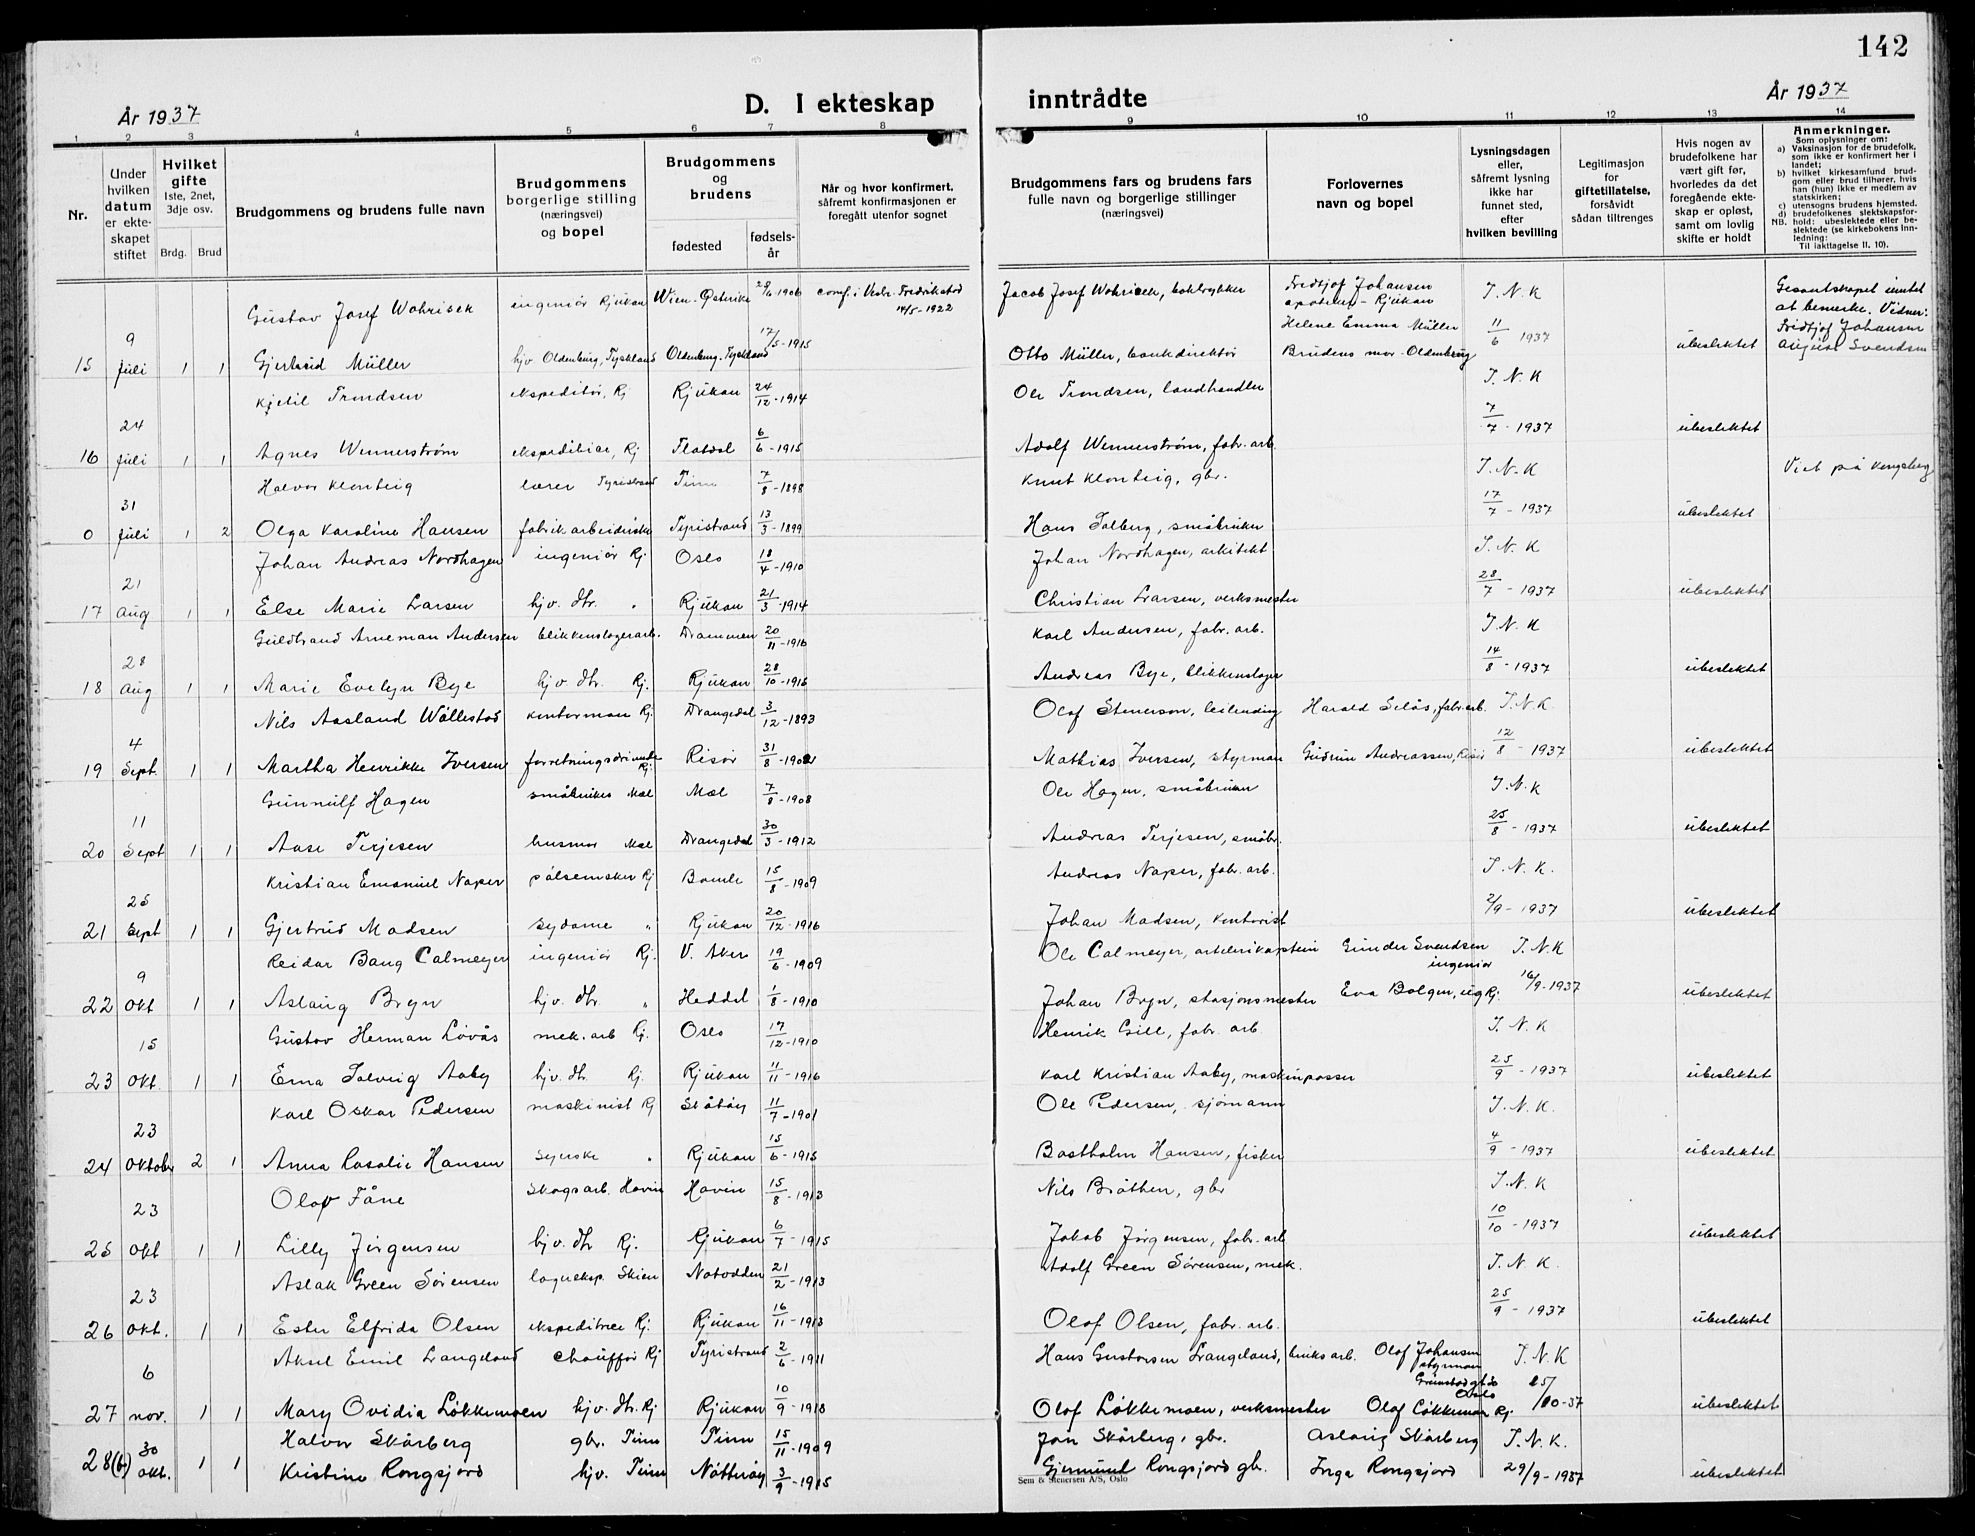 142
År 1937
D. I ekteskap
inntrådte
År 1937
1 2 3 4 5 6 7 8
9 10 11 12 13 14
Nr.
Under hvilken datum er ekteskapet stiftet
Hvilket gifte
1ste, 2net, 3dje osv.
Brdg. Brud
Brudgommens og brudens fulle navn
Brudgommens borgerlige stilling (næringsvei) og bopel
Brudgommens og brudens
fødested
fødselsår
Når og hvor konfirmert, såfremt konfirmasjonen er foregått utenfor sognet
Brudgommens fars og brudens fars fulle navn og borgerlige stillinger (næringsvei)
Forlovernes navn og bopel
Lysningsdagen eller, såfremt lysning ikke har funnet sted, efter hvilken bevilling
Legitimasjon for giftetillatelse, forsåvidt sådan tiltrenges
Hvis nogen av brudefolkene har vært gift før, hvorledes da det foregående ekteskap er opløst, samt om lovlig skifte er holdt
Anmerkninger.
Som oplysninger om:
a) Vaksinasjon for de brudefolk, som ikke er konfirmert her i landet;
b) hvilket kirkesamfund brudgom eller brud tilhører, hvis han (hun) ikke er medlem av statskirken;
c) utensogns brudens hjemsted.
d) brudefolkenes slektskapsforhold: ubeslektede eller beslektede (se kirkebokens innledning:
NB.
Til iakttagelse II. 10).
Gustav Josef Wohrisek ingeniör Rjukan Wien-Österike 1906 conf. i Vestr. Fredrikstad 14/5-1922 Jacob Josef Wohrisek, boktrykker Fredtjof Johansen apoteker - Rjukan T. N. K
15 9 juli 1 1 Gjertrud Müller hjv Oldenburg, Tyskland Oldenburg, Tyskland 17/5-1915 Otto Müller, bankdirektör Helene Emma Müller Brudens mor - Oldenburg 11/6 1937 übeslektet
Kjetil Trondsen ekspeditör, Rj Rjukan 24/12-1914 Ole Trondsen, landhandler T. N. K
16 24 juli 1 1 Agnes Wennerström ekspeditrise, Rj Flatdal 6/6-1915 Adolf Wennerström, fabr. arb. 7/7-1937 übeslektet
Halvor Klonteig lærer Tyristrand Tinn 7/8-1898 Knut Klonteig, gbr. T. N. K Viet på Kongsberg
0 31 juli 1 2 Olga Karoline Hansen fabrikarbeiderske Tyristrand 13/3-1899 Hans Solberg, småbruker 17/7-1937 übeslektet
Johan Andreas Nordhagen ingeniör Rj Oslo 18/4-1910 Johan Nordhagen, arkitekt T. N. K
17 21 aug 1 1 Else Marie Larsen hjv. dtr. " Rjukan 21/3-1914 Christian Larsen, verksmester 28/7-1937 übeslektet
Guldbrand Arneman Andersen blikkenslagerarb. Drammen 20/11-1916 Karl Andersen, fabr. arb. T. N. K
18 28 aug 1 1 Marie Evelyn Bye hjv. dtr. Rj. Rjukan 28/10-1915 Andreas Bye, blikkenslager 14/8-1937 übeslektet
Nils Aasland Wöllestad kontorman Rj. Drangedal 3/12-1893 Olaf Stenerson, leilending Harald Selås, fabr. arb. T. N. K.
19 4 Sept. 1 1 Martha Henrikke Iversen Rj. Risör 31/8-1902 Mathias Iversen, styrman Gudrun Andreassen, Risör 12/8-1937 übeslektet
Gunnulf Hagen småbruker Mæl Mæl 7/8-1908 Ole Hagen, småbruker T. N. K
20 11 Sept 1 1 Aase Terjesen husmor Mæl Drangedal 30/3-1912 Andreas Terjesen, småbr. 25/8-1937 übeslektet
Kristian Emanuel Naper pölsemaker Rj Bamle 15/8-1909 Andreas Naper, fabr. arb. T. N. K.
21 25 sept 1 1 Gjertrud Madsen sydame " Rjukan 20/12-1916 Johan Madsen, kontorist 2/9-1937 übeslektet
Reidar Bang Calmeyer ingeniör Rj. V. Aker 19/6-1909 Ole Calmeyer, artillerikaptein Gunder Svendsen ingeniör T. N. K
22 9 Okt 1 1 Aslaug Bryn hjv. dtr. " Heddal 1/8-1910 Johan Bryn, stasjonsmester Eva Bolgen, Rj. 16/9-1937 übeslektet
Gustav Herman Lövås mek. arb Rj. Oslo 17/12-1910 Henrik Gill, fabr. arb. T. N. K
23 15 Okt. 1 1 Erna Solveig Aaby hjv. dtr. Rj. Rjukan 11/11-1916 Karl Kristian Aaby, maskinpasser 25/9-1937 übeslektet
Karl Oskar Pedersen maskinist Rj Skåtöy 11/7-1901 Ole Pedersen, sjömann T. N. K.
24 23 Oktober 2 1 Anna Rosalie Hansen syerske " Rjukan 15/6-1915 Bastholm Hansen, fisker 4/9-1937 übeslektet
Olav Fåne Skogsarb. Hovin Hovin 15/8-1913 Nils Bråthen, gbr T. N. K
25 23 Okt 1 1 Lilly Jörgensen hjv. dtr Rj. Rjukan 6/7-1915 Jakob Jörgensen, fabr. arb 10/10-1937 übeslektet
Aslak Green Sörensen lagereksp. Skien Notodden 21/2-1913 Adolf Green Sörensen, mek. T. N. K.
26 23 Okt. 1 1 Ester Elfrida Olsen ekspeditrice Rj. Rjukan 16/11-1913 Olaf Olsen, fabr. arb. 25/9-1937 übeslektet
Aksel Emil Langeland chaufför Rj Tyristrand 2/6-1911 Hans Gustavsen Langeland, bruksarb. Olaf Johansen styrman Oslo T. N. K
27 6 nov. 1 1 Mary Ovidia Lökkemoen hjv. dtr. Rj Rjukan 10/9-1913 Olaf Lökkemoen, verksmester Olaf Lökkemoen Rj. 25/10-37 übeslektet
Halvor Skårberg gbr. Tinn Tinn 15/11-1909 Jon Skårberg, gbr. Aslaug Skårberg T. N. K.
28(b) 30 okt. 1 1 Kristine Rongsjord hjv. Tinn Nötteröy 3/9-1915 Gjermund Rongsjord gbr. Inga Rongsjord 29/9-1937 übeslektet
Gesantskapet intet at bemerke. Vidner: Fridtjof Johansen August Svendsen
Sem & Stenersen A/S, Oslo